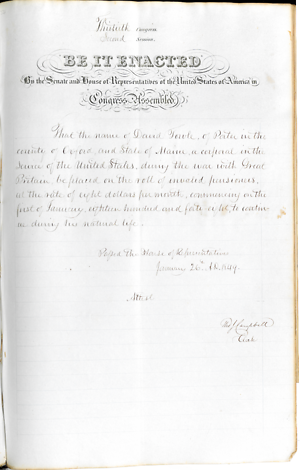 Thirtieth Congress
Second Session
BE IT ENACTED
By the Senate and House of Representatives of the United States of America in
Congress Assembled,
That the name of David Towle, of Porter in the
county of Oxford, and State of Maine, a corporal in the
service of the United States, during the war with Great
Britain, be placed on the roll of invalid pensioners,
at the rate of eight dollars per month, commencing on the
first of January eighteen hundred and forty eight, to continue
during his natural life.
Passed the House of Representatives
January 26th 1849.
Attest
Campbell
Clerk